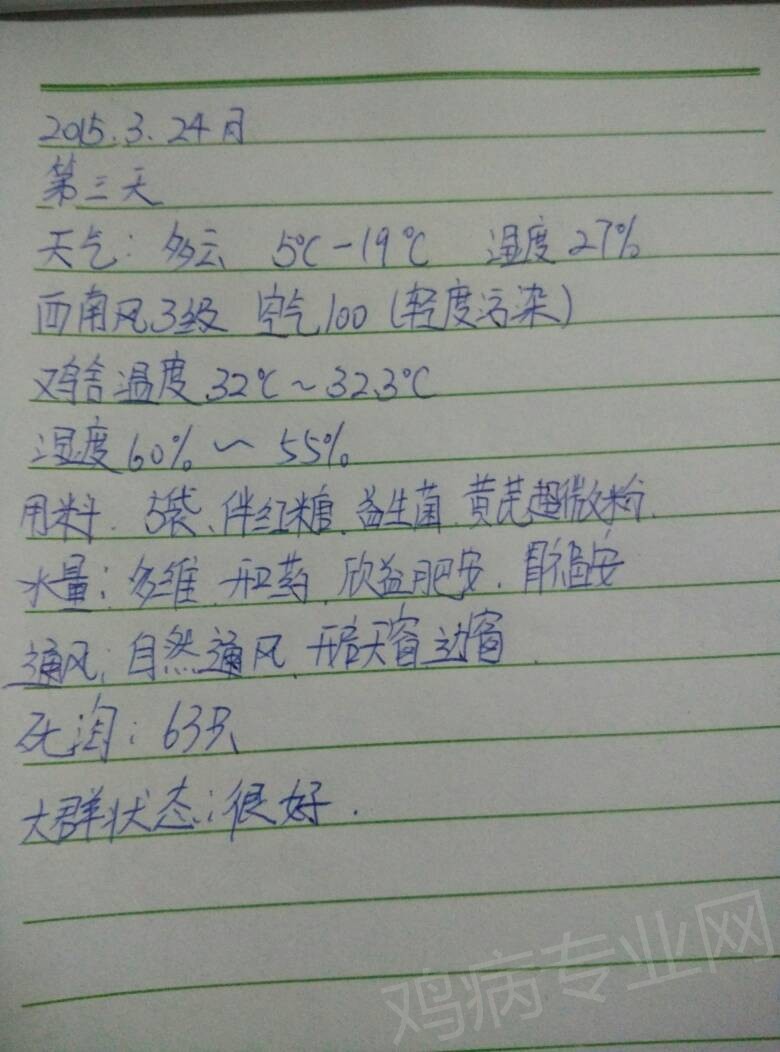 2015.3.24日
第三天
天气：多云 5℃-19℃ 湿度27%
西南风3级 空气100(轻度污染)
鸡舍温度.32℃~32.3℃
湿度60%~55%
用料. 5袋、伴红糖.益生菌.黄芪超微粉.
水量：多维.开口药.欣益肥安.
通风：自然通风.开启天窗.边窗.
死淘：63只
大群状态：很好.
鸡病专业网